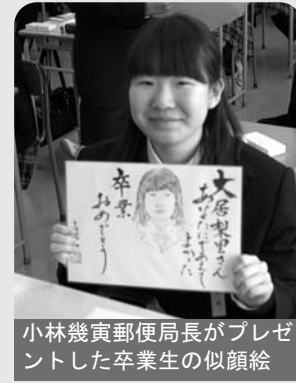 大居梨里さん
あなたにであえて
よかった
卒業
おめでとう
小林幾寅郵便局長がプレゼ
ントした卒業生の似顔絵